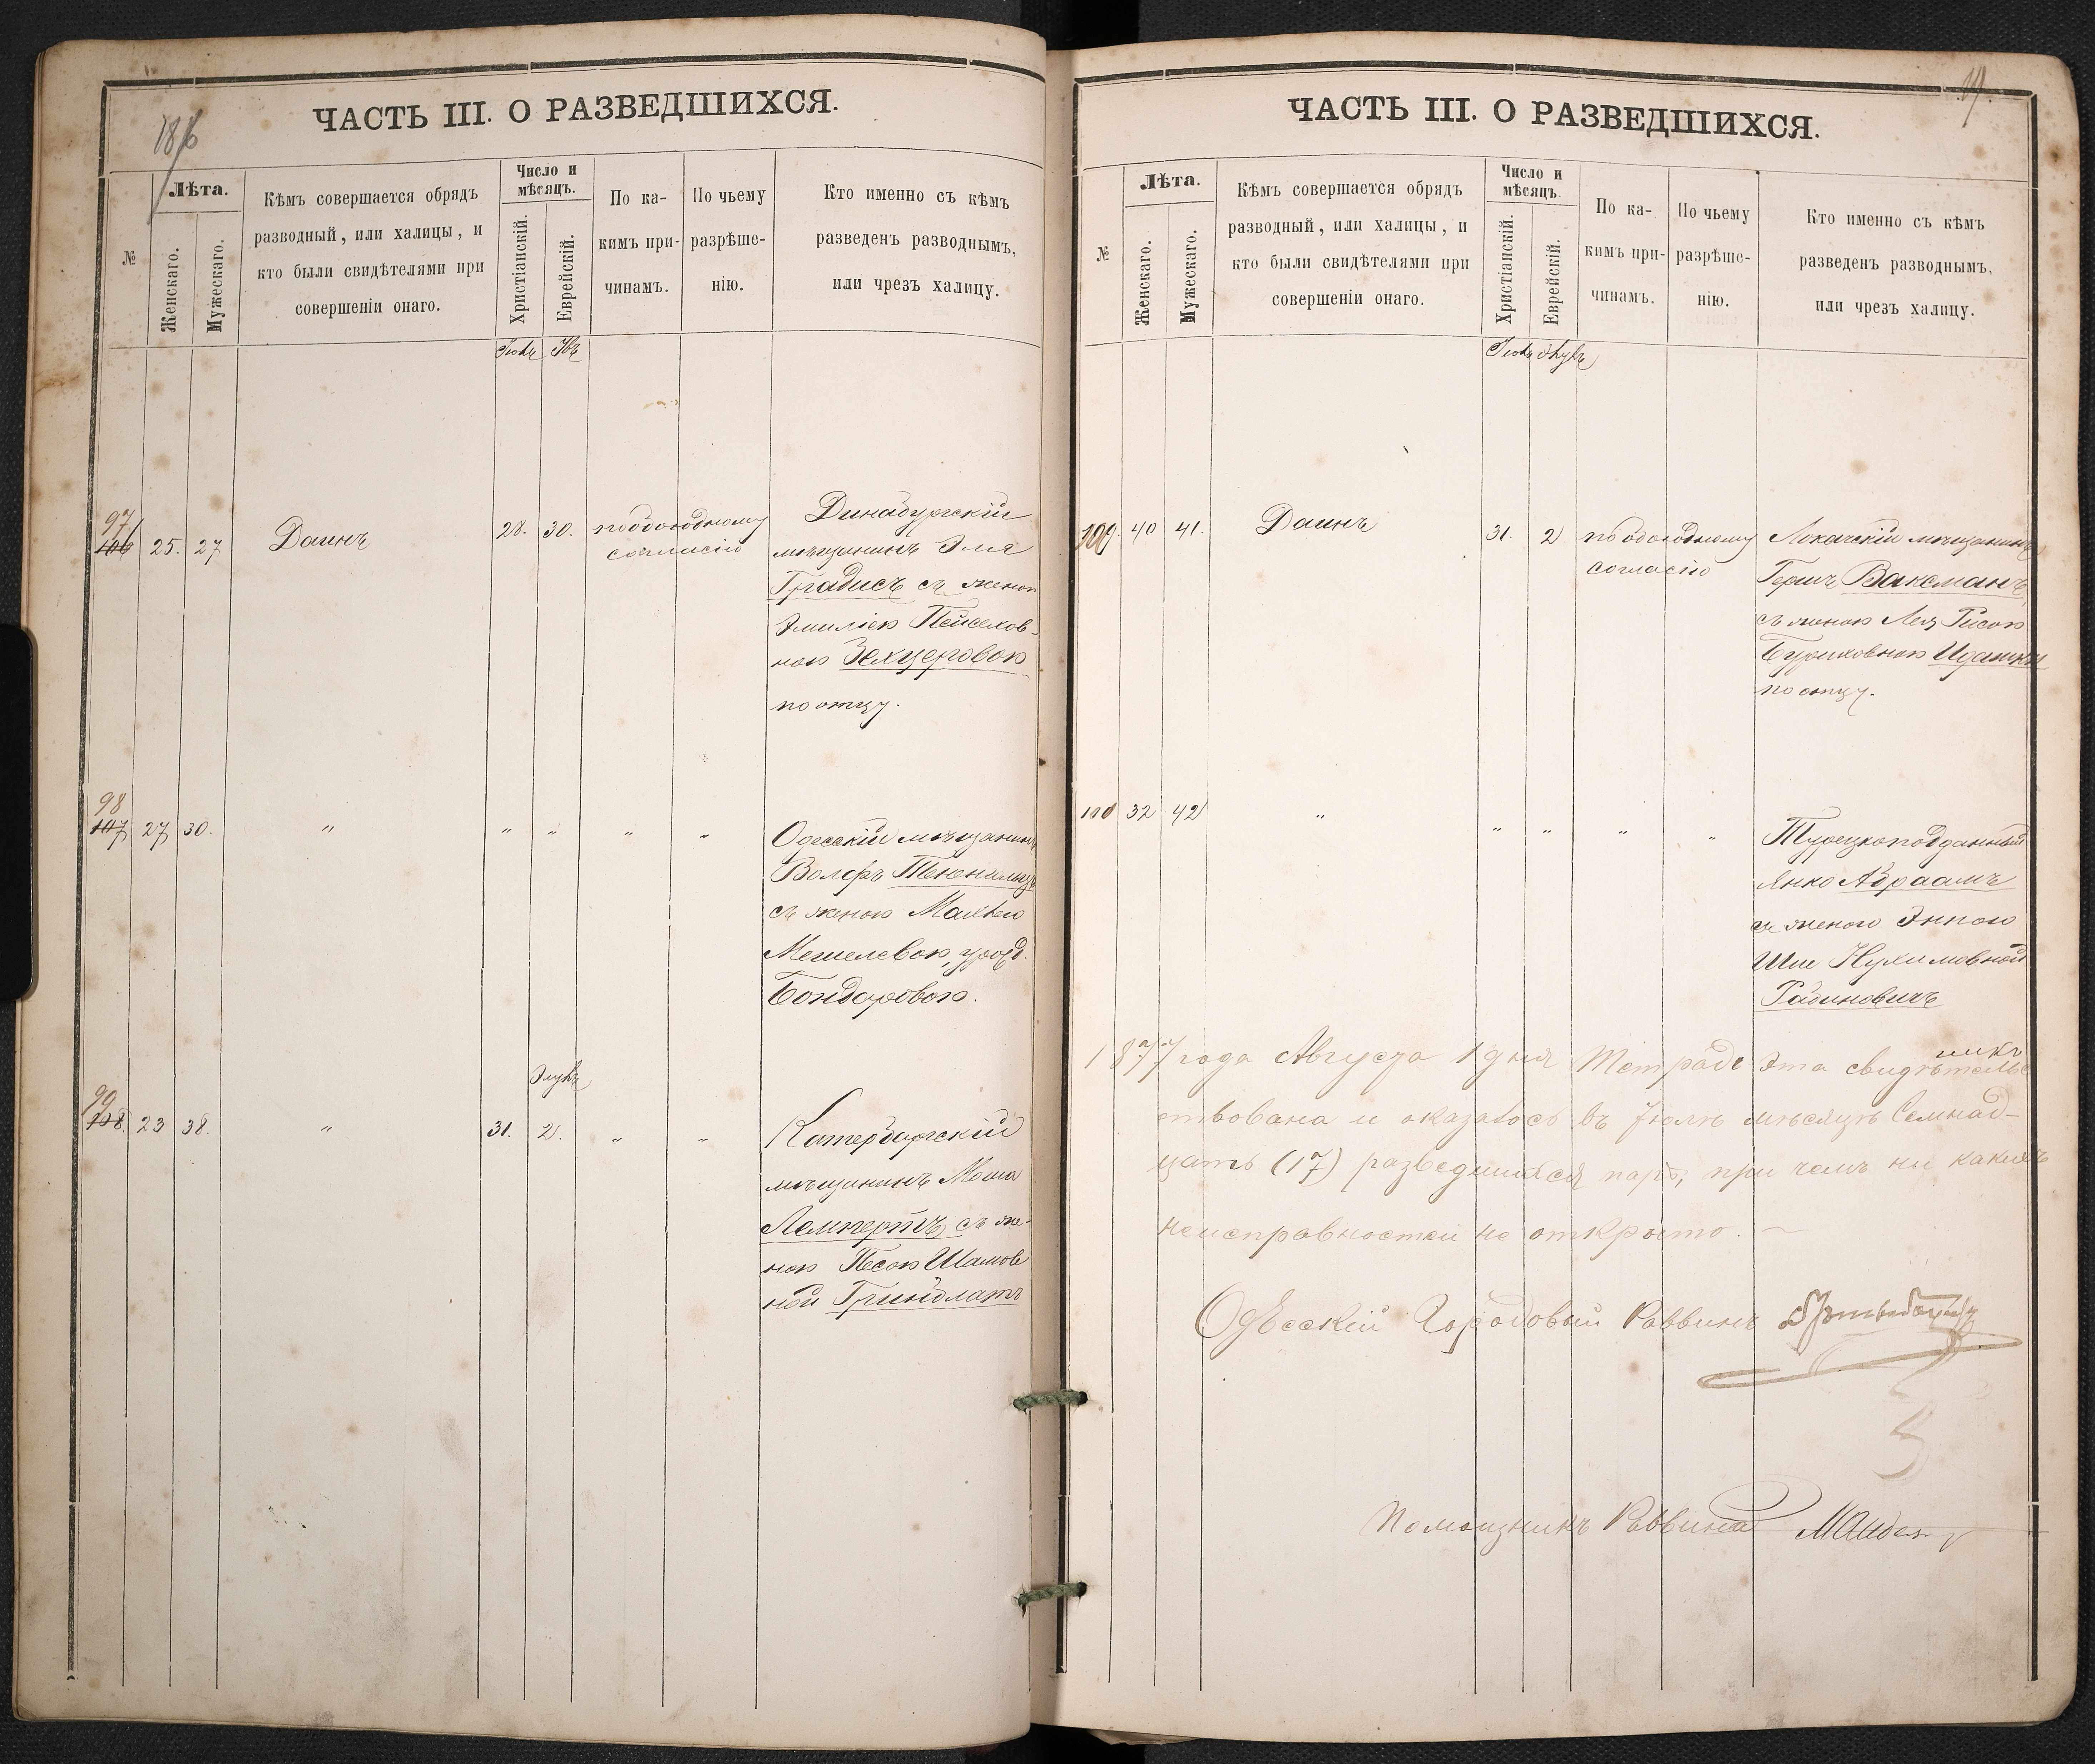 ЧАСТЬ III. О РАЗВЕДШИХСЯ.
№
Лѣта.
Женскаго.
Мужескаго.
Кѣмъ совершается обрядъ
разводный, или халицы, и
кто были свидѣтелями при
совершеніи онаго.
Число и
мѣсяцъ.
Христіанскій.
Еврейскій.
По ка-
кимъ при-
чинамъ.
По чьему
разрѣше-
нію.
Кто именно съ кѣмъ
разведенъ разводнымъ,
или чрезъ халицу.
97
106 25. 27 Даинъ 28. 30. по обоюдному
согласію
Динабургскій
мѣщанинъ Эля
Градисъ съ женою
Эмиліею Пейсахов-
ною Зельцеровою
по отцу.
98
107 27 30. " " " " "
Одесскій мѣщанинъ
Вольфъ
съ женою
Мешелевою, урожд.
Бондаровою.
Элулъ
99
108. 23 38. " 31. 2. " "
мѣщанинъ Моша
Лемпертъ съ же-
ною Песею
ной Гринблатъ
19.
ЧАСТЬ III. О РАЗВЕДШИХСЯ.
№
Лѣта.
Женскаго.
Мужескаго.
Кѣмъ совершается обрядъ
разводный, или халицы, и
кто были свидѣтелями при
совершеніи онаго.
Число и
мѣсяцъ.
Христіанскій.
Еврейскій.
По ка-
кимъ при-
чинамъ.
По чьему
разрѣше-
нію.
Кто именно съ кѣмъ
разведенъ разводнымъ,
или чрезъ халицу.
Элулъ
100. 40 41. Даинъ 31. 2 по обоюдному
согласію
мѣщанинъ
Гершъ Ваксманъ
съ женою Лея Рисою
Буриховною
по отцу.
32 42 " " " " "
Турецкоподданный
Янко Абраамъ
съ женою Энтою
Нухимовной
Рабиновичъ
1877 года Августа 1 дня Тетрадь эта свидѣтель-
ствована и оказалось въ Іюлѣ мѣсяцѣ Семнад-
цать (17) разведшихся паръ, при чемъ ни какихъ
неисправностей не открыто.
Одесскій Городовый Раввинъ
Помощникъ Раввина